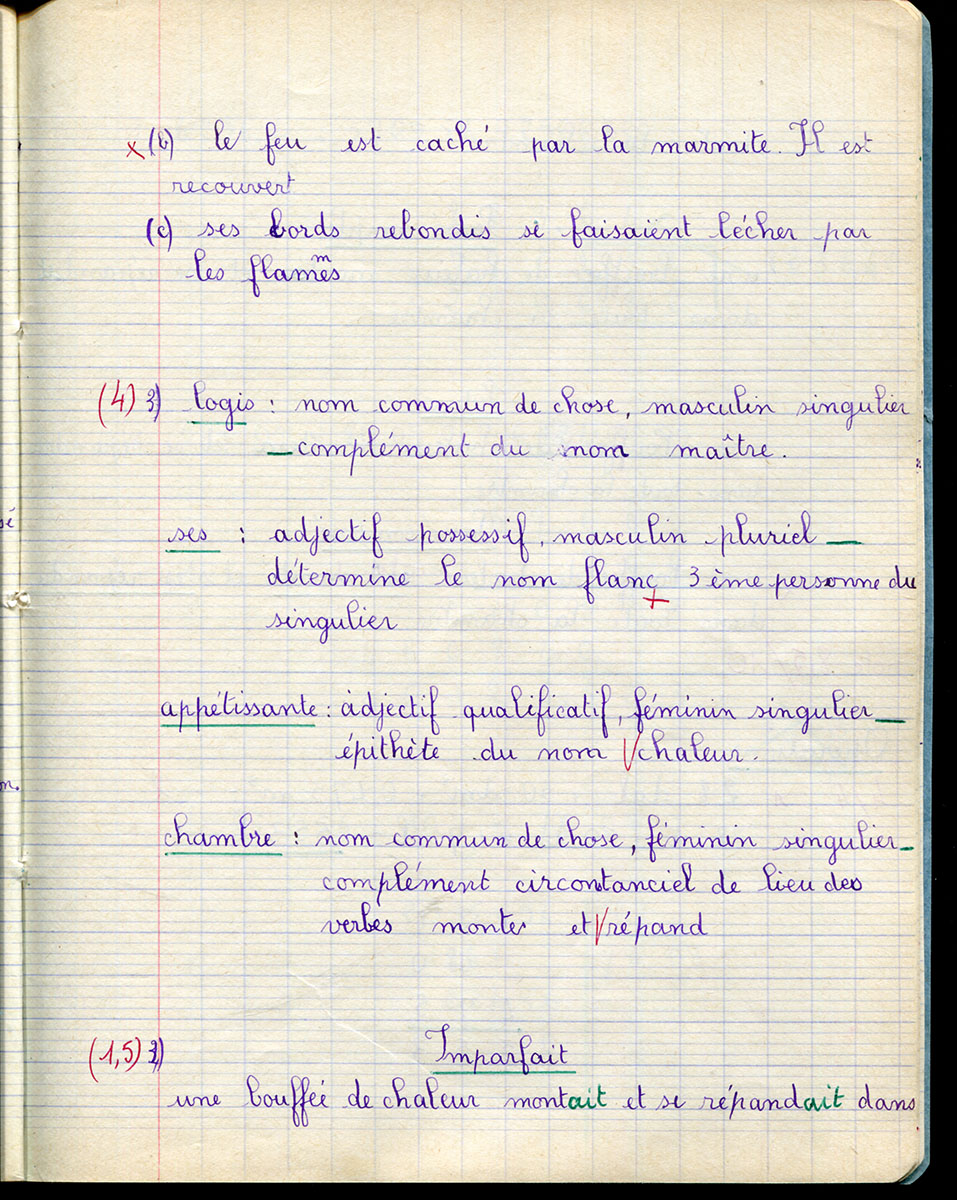 x (b) le feu est caché par la marmite. Il est
recouvert
(c) ses bords rebondis se faisaient lécher par
m
les flames
(4) 3) logis : nom commun de chose, masculin singulier
– complément du nom maître.
sé
ses : adjectif possessif, masculin pluriel –
détermine le nom flanc 3 ème personne du
+
singulier
appétissante : adjectif qualificatif, féminin singulier –
épithète du nom |/chaleur.
n.
chambre : nom commun de chose, féminin singulier –
complément circontanciel de lieu des
verbes monte et |/répand
(1,5) Imparfait
une bouffée de chaleur montait et se répandait dans